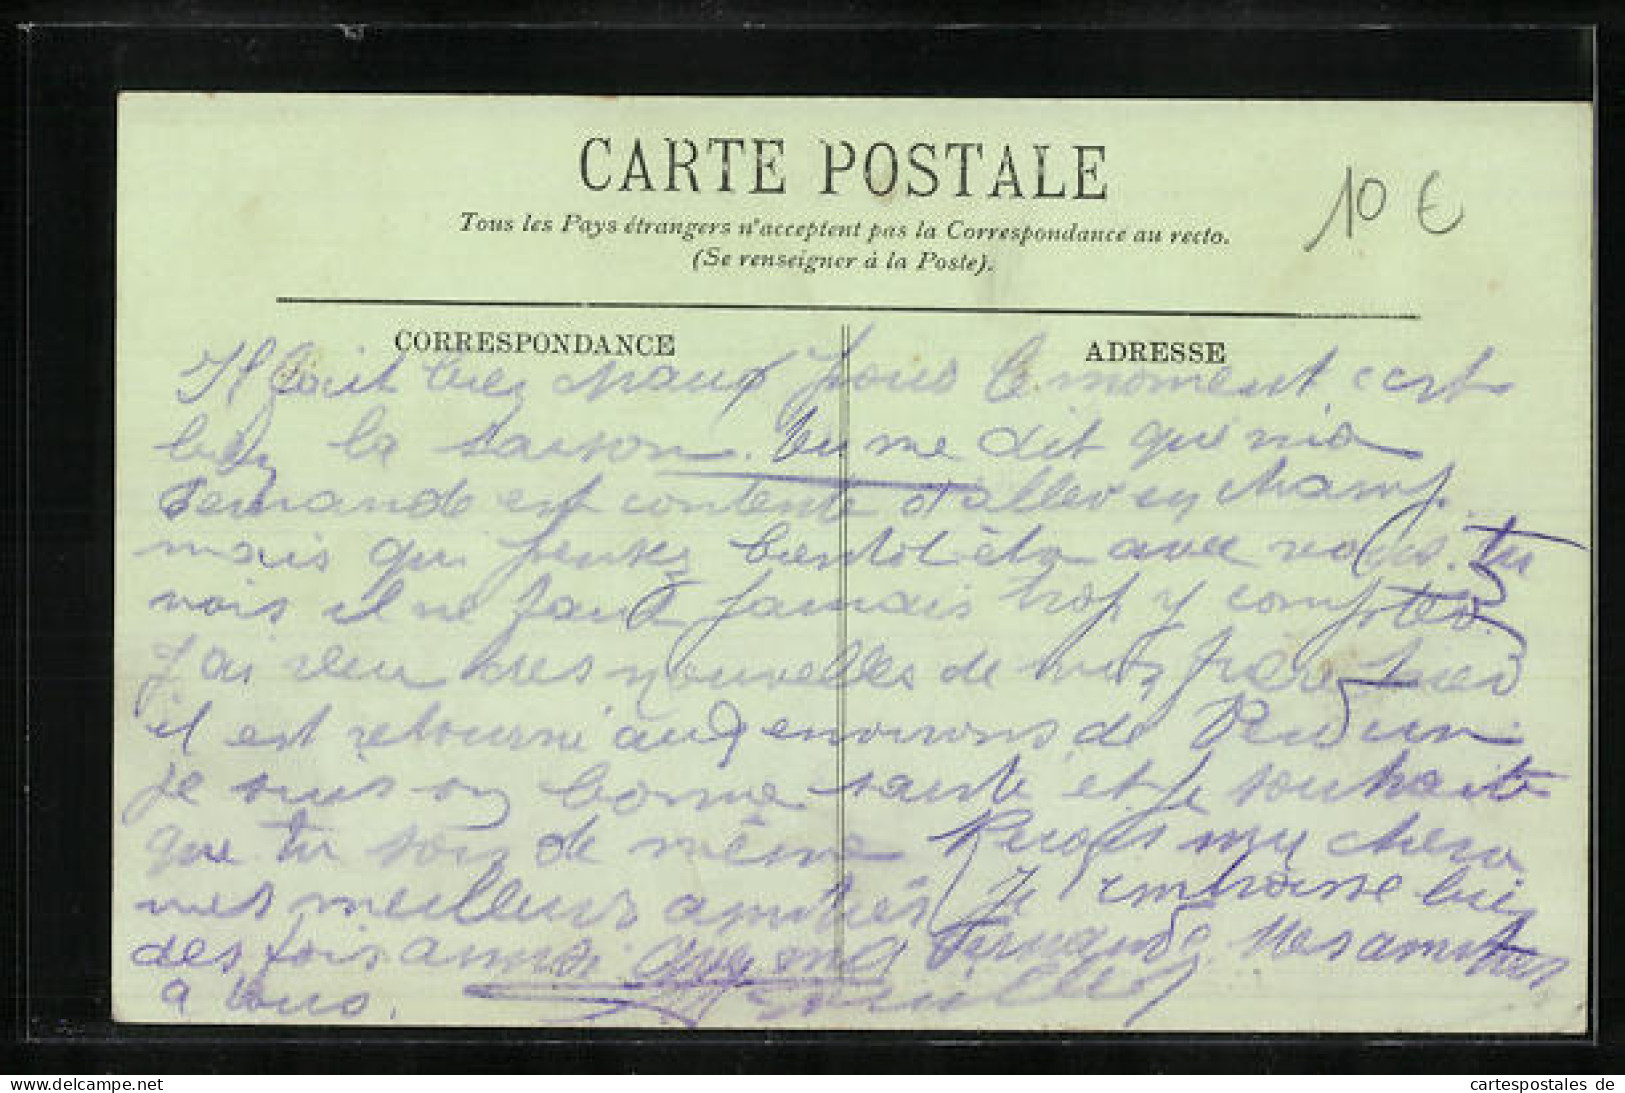 CARTE POSTALE
10 €
Tous les Pays étrangers n'acceptent pas la Correspondance au recto.
(Se renseigner à la Poste).
CORRESPONDANCE
ADRESSE
Il fait bien chaux pour le moment c'est
bien la saison. tu me dit que ma
Fernande est contente d'aller en champ.
mais qui pensez bientot être avec vous. tu
vois il ne faut jamais trop y compter.
J'ai reçu des nouvelles de mon frère hier
il est retourné aux environs de Verdun.
je suis en bonne santé et je souhaite
que tu sois de même Reçois ma chère
mes meilleurs amitiés Je t'embrasse bien
des fois ainsi que ma Fernande. Mes amitiés
a tous.
www.delcampe.net
cartespostales de